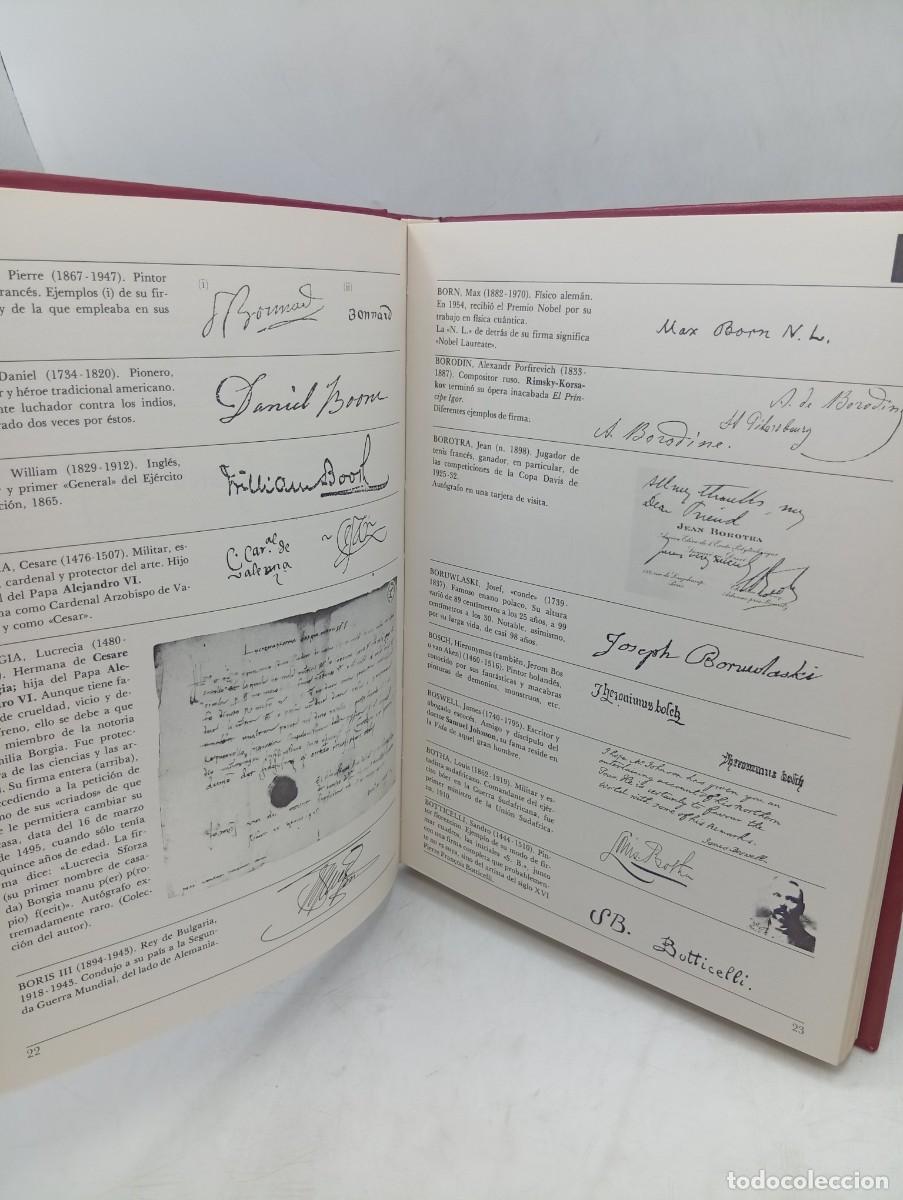 Pierre (1867-1947). Pintor
rancés. Ejemplos (i) de su fir-
y de la que empleaba en sus
(i)
(ii)
Bonnard
Bonnard
Daniel (1734-1820). Pionero,
r y héroe tradicional americano.
nte luchador contra los indios,
rado dos veces por éstos.
Daniel Boone
William (1829-1912). Inglés,
r y primer «General» del Ejército
ción, 1865.
William Booth
A, Cesare (1476-1507). Militar, es-
, cardenal y protector del arte. Hijo
l del Papa Alejandro VI.
na como Cardenal Arzobispo de Va-
y como «Cesar».
GIA, Lucrecia (1480-
). Hermana de Cesare
gia; hija del Papa Ale-
dro VI. Aunque tiene fa-
de crueldad, vicio y de-
freno, ello se debe a que
miembro de la notoria
milia Borgia. Fue protec-
ra de las ciencias y las ar-
. Su firma entera (arriba),
ccediendo a la petición de
no de sus «criados» de que
e le permitiera cambiar su
casa, data del 16 de marzo
de 1495, cuando sólo tenía
quince años de edad. La fir-
ma dice: «Lucrecia Sforza
(su primer nombre de casa-
da) Borgia manu p(er) p(ro-
pio) f(ecit)». Autógrafo ex-
tremadamente raro. (Colec-
ción del autor).
BORIS III (1894-1943). Rey de Bulgaria,
1918-1943. Condujo a su país a la Segun-
da Guerra Mundial, del lado de Alemania.
22
BORN, Max (1882-1970). Físico alemán.
En 1954, recibió el Premio Nobel por su
trabajo en física cuántica.
La «N. L.» de detrás de su firma significa
«Nobel Laureate».
Max Born N. L.
BORODIN, Alexandr Porfirevich (1833-
1887). Compositor ruso. Rimsky-Korsa-
kov terminó su ópera inacabada El Prín-
cipe Igor.
Diferentes ejemplos de firma:
A. Borodine.
A. de Borodine
St Pétersbourg
BOROTRA, Jean (n. 1898). Jugador de
tenis francés, ganador, en particular, de
las competiciones de la Copa Davis de
1925-32.
Autógrafo en una tarjeta de visita.
All my thanks, my
Dear Friend
JEAN BOROTRA
BORUWLASKI, Josef, «conde» (1739-
1837). Famoso enano polaco. Su altura
varió de 89 centímetros a los 25 años, a 99
centímetros a los 30. Notable, asimismo,
por su larga vida, de casi 98 años.
Joseph Boruwlaski
BOSCH, Hieronymus (también, Jerom Bos
o van Aken) (1460-1516). Pintor holandés,
conocido por sus fantásticas y macabras
pinturas de demonios, monstruos, etc.
Jheronimus bosch
Jheronimus bosch
BOSWELL, James (1740-1795). Escritor y
abogado escocés. Amigo y discípulo del
doctor Samuel Johnson, su fama reside en
la Vida de aquel gran hombre.
I hope Mr Johnson has given you an
entertaining account of the Northern
Tour. He is certainly to favour the
world with some of his remarks.
James Boswell.
BOTHA, Louis (1862-1919). Militar y es-
tadista sudafricano. Comandante del ejér-
cito bóer en la Guerra Sudafricana, fue
primer ministro de la Unión Sudafrica-
na, 1910.
Louis Botha
BOTTICELLI, Sandro (1444-1510). Pin-
tor florentino. Ejemplo de su modo de fir-
mar cuadros, las iniciales «S. B.», junto
con una firma completa que probablemen-
te no es suya, sino del artista del siglo XVI
Pierre François Botticelli.
SB. Botticelli.
23
todocoleccion